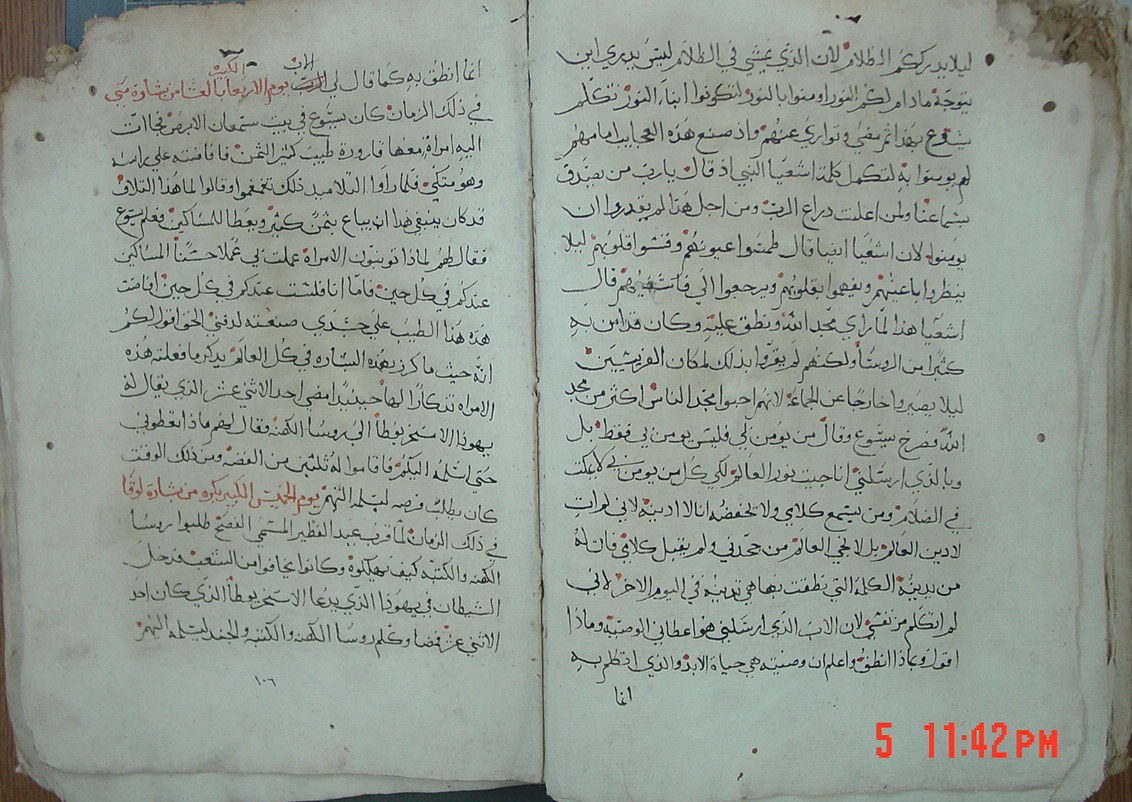 ليلا يدرككم الظلام لان الذي يمشي في الظلام ليس يدري اين
يتوجة مادام لكم النور اومنوا بالنور لتكونوا ابناء النور تكلم
يشوع بهذا ثم مضي وتواري عنهم واذ صنع هذه العجايب امامهم
لم يومنوا به لتكمل كلمة اشعيا النبي اذ قال يارب من يصدق
بسماعنا ولمن اعلنت دراع الرب ومن اجل هذا لم يقدروا ان
يومنوا لان اشعيا ايضا قال طمسوا عيونهم وقسوا قلوبهم ليلا
ينظروا باعينهم ويفهموا بقلوبهم ويرجعوا الي فاشفيهم قال
اشعيا هذا لما راي مجد الله ونطق عليه وكان قد امن به
كثيرا من الروسا ولكنهم لم يقروا بذلك لمكان الفريسيين
ليلا يصيروا خارجا عن الجماعة لانهم احبوا مجد الناس اكثر من مجد
الله فصرخ يسوع وقال من يومن بي فليس يومن بي فقط بل
وبالذي ارسلني انا جيت نور العالم لكي كل من يومن بي لا يمكث
في الضلام ومن يسمع كلامي ولا يحفضه انا لا ادينه لاني لم ات
لادين العالم بل لانجي العالم من جحدني ولم يقبل كلامي فان له
من يدينه الكلمة التي نطقت بها هي تدينه في اليوم الاخر لاني
لم اتكلم من نفسي لان الاب الذي ارسلني هو اعطاني الوصية وماذا
اقول وبماذا انطق واعلم ان وصيته هي حياة الابد والذي اتكلم به
انما
انما انطق به كما قال لي الاب يوم الاربعا الكبير بالعشا من بشارة متى
في ذلك الزمان كان يسوع في بيت سمعان الابرص فجاات
اليه امراة معها قارورة طيب كثير الثمن فافاضته علي راسه
وهو متكي فلما راوا التلاميد ذلك تقمقموا وقالوا لما هذا التلاف
قد كان ينبغي هذا ان يباع بثمن كثير ويعطا للمساكين فعلم يسوع
فقال لهم لماذا تونبون الامراة عملت بي عملا حسنا المساكين
عندكم في كل حين فاما انا فلست عندكم في كل حين افاضت
هذه هذا الطيب علي جسدي صنعته لدفني الحق اقول لكم
انه حيث ما كرز بهذه البشاره في كل العالم يدكر ما فعلته هذه
الامراه تذكارا لها حينيذ امضى احد الاثني عشر الذي يقال له
يهوذا الاسخريوطا الى روسا الكهنة وقال لهم ماذا تعطوني
حتى اسلمه اليكم فاقاموا له ثلثين من الفضه ومن ذلك الوقت
كان يطلب فرصه ليسلمه اليهم يوم الخميس الكبير بكره من بشارة لوقا
في ذلك الزمان لما قرب عيد الفطير المسمى الفصح طلبوا روسا
الكهنه والكتبه كيف يهلكوه وكانوا يخافوا من الشعب فدخل
الشيطان في يهوذا الذي يدعا الاسخريوطا الذي كان احد
الاثني عشر فمضا وكلم روسا الكهنه والكتبه والجند ليسلمه اليهم
١٠٦
5 11:42 PM